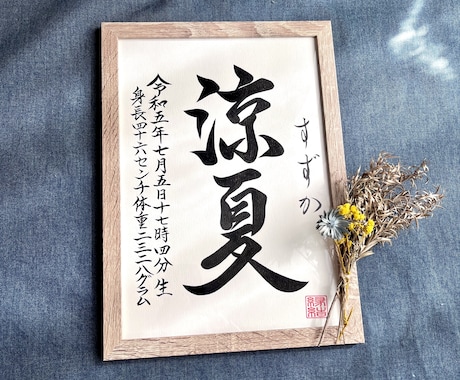 すずか
涼夏
令和五年七月五日十七時四分 生
身長四十六センチ体重二三二八グラム